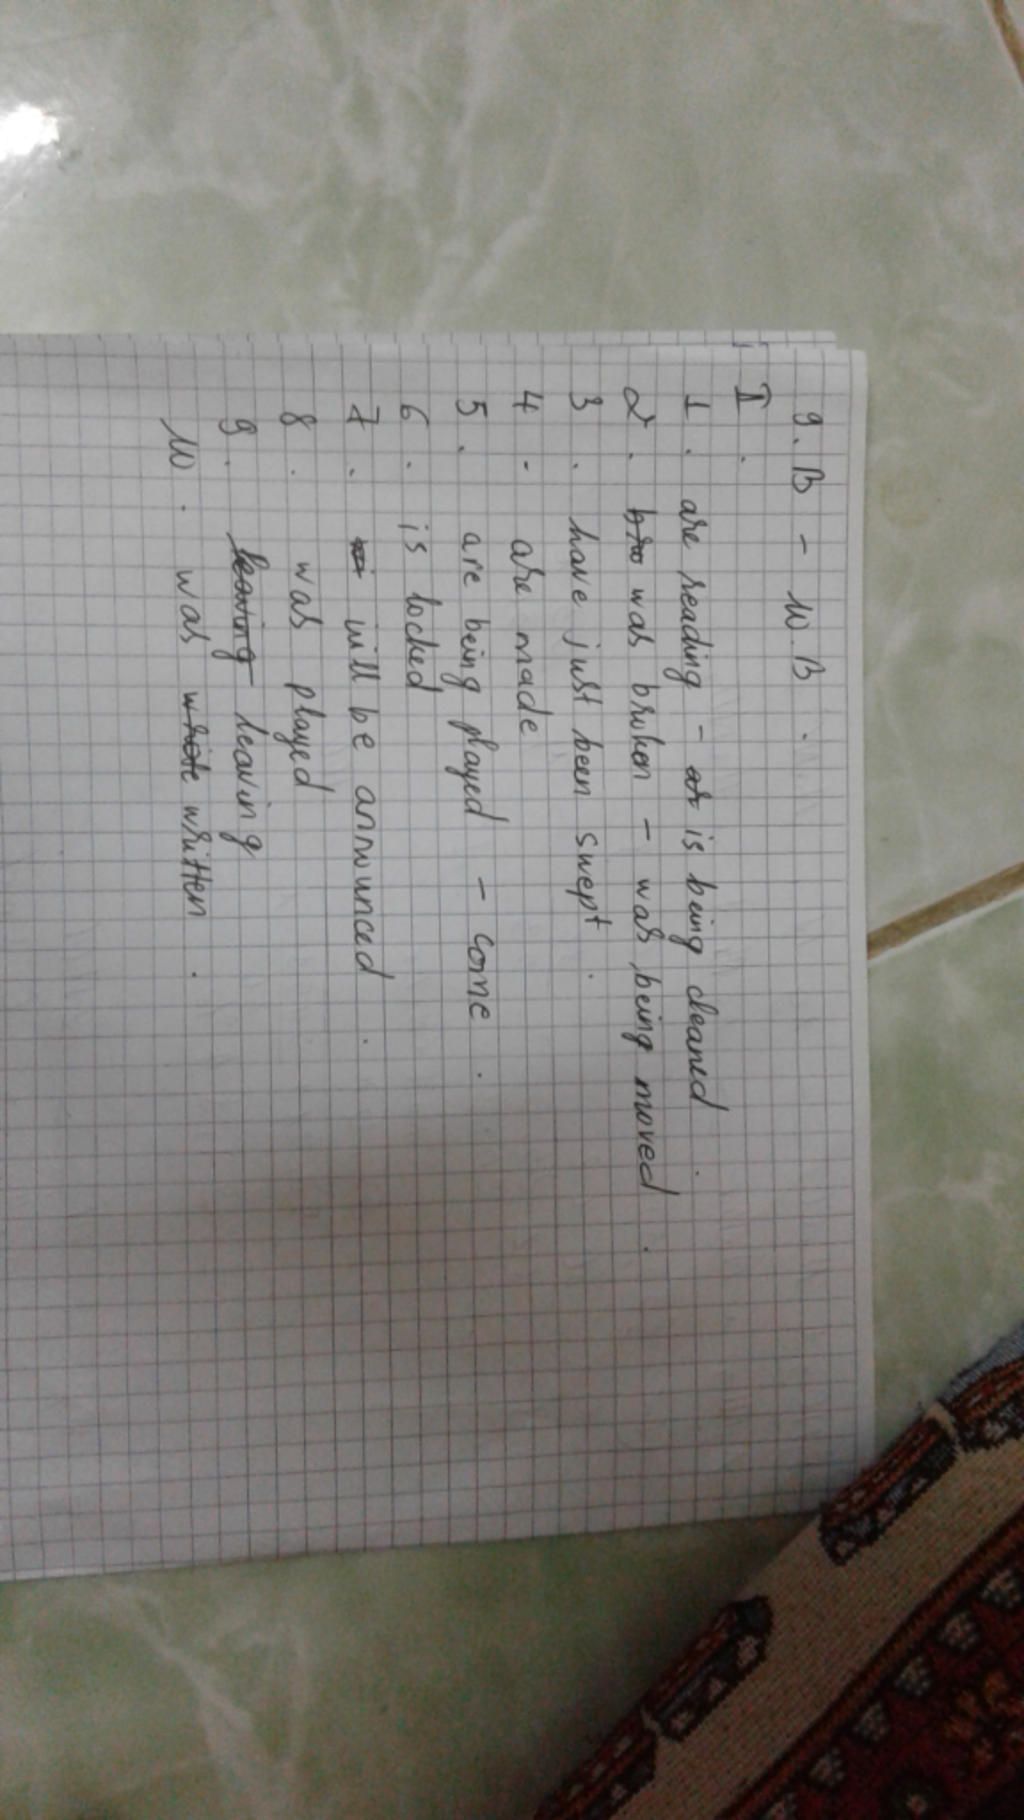 9. B - 10. B.
I.
1. are reading - is being cleaned.
2. was broken - was being moved.
3. have just been swept.
4. are made
5. are being played - come.
6. is locked
7. will be announced.
8. was played
9. leaving
10. was written.